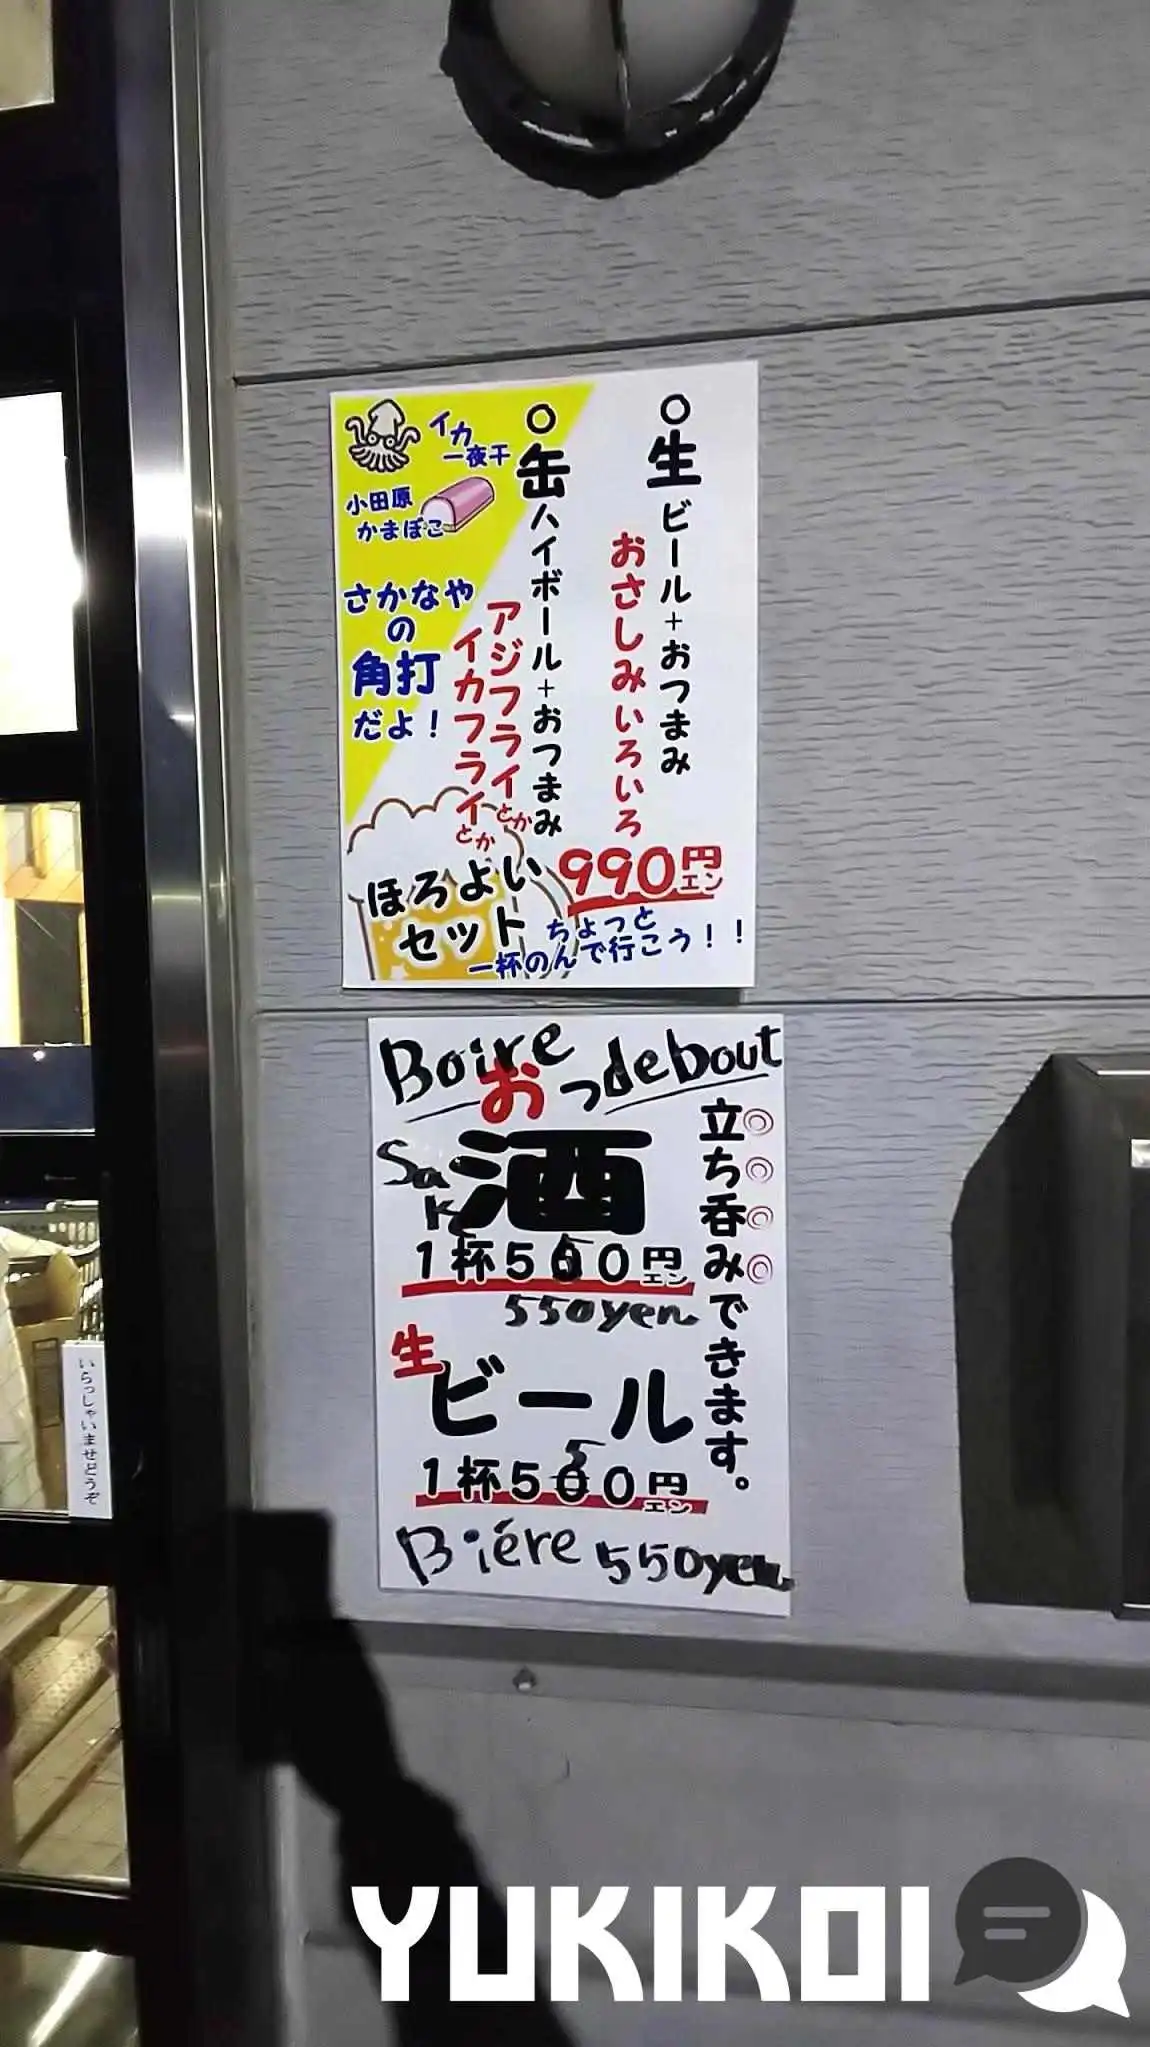 ○生ビール+おつまみ
おさしみいろいろ
○缶ハイボール+おつまみ
アジフライとか
イカフライとか
990円
エン
イカ
一夜干
小田原
かまぼこ
さかなや
の
角打
だよ！
ほろよい
セット
ちょっと
一杯のんで行こう！！
Boire debout
おっ
立ち呑みできます。
◎◎◎◎
Sake
酒
1杯550円
エン
550yen
生
ビール
1杯550円
エン
Biére 550yen
いらっしゃいませどうぞ
YUKIKOI